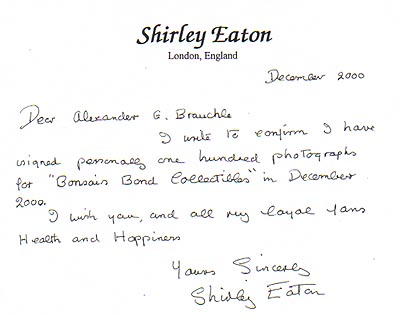 Shirley Eaton
London, England
December 2000
Dear Alexander G. Brauchle
I write to confirm I have
signed personally one hundred photographs
for "Bonsais Bond Collectibles" in December
2000.
I wish you, and all my loyal fans
Health and Happiness
Yours Sincerely
Shirley Eaton